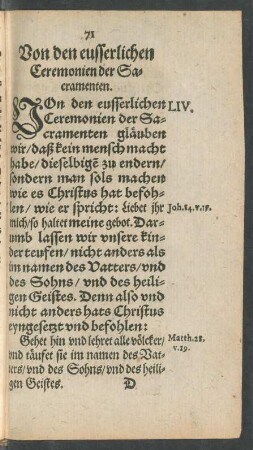 71
Von den eusserlichen
Ceremonien der Sa-
cramenten.
VOn den eusserlichen LIV.
Ceremonien der Sa-
cramenten gläuben
wir/ daß kein mensch macht
habe/ dieselbigẽ zu endern/
sondern man sols machen
wie es Christus hat befoh-
len/ wie er spricht: Liebet jhr Joh.14.v.15.
mich/ so haltet meine gebot. Dar-
umb lassen wir vnsere kin-
der teufen/ nicht anders als
im namen des Vatters/ vnd
des Sohns/ vnd des heili-
gen Geistes. Denn also vnd
nicht anders hats Christus
eyngesetzt vnd befohlen:
Gehet hin vnd lehret alle völcker/ Matth.28.
vnd täufet sie im namen des Vat- v.19.
ters/ vnd des Sohns/ vnd des heili-
gen Geistes. D